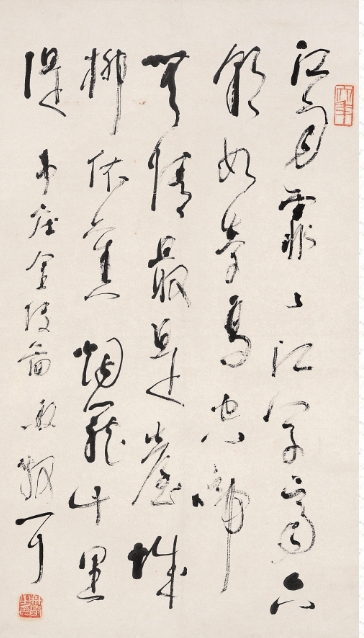 江雨霏〻江草齊六
朝如夢鳥空啼
無情最是臺城
柳依舊烟籠十里
堤 韋莊金陵圖